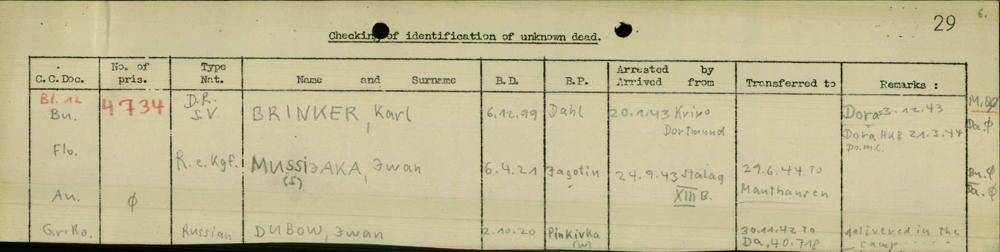 29
6.
Checking of identification of unknown dead.
C.C.Doc. No. of pris. Type Nat. Name and Surname B.D. B.P. Arrested by Arrived from Transferred to Remarks :
Bl. 12 4734 D.R.
Bu. S.V BRINKER, Karl 6.12.99 Dahl 20.1.43 Kripo Dortmund Dora 3.12.43
Dora HKB 21.3.44
Flo.
R.c.Kgf. MUSSIJAKA, Iwan 6.4.21 Jagotin 24.9.43 Stalag XIII B. 29.6.44 to Mauthausen
(S)
Au. φ
Gr.Ro. Russian DUBOW, Iwan 2.10.20 Pinkivka (w) 30.11.42 to Da, 40.718 delivered in the camp